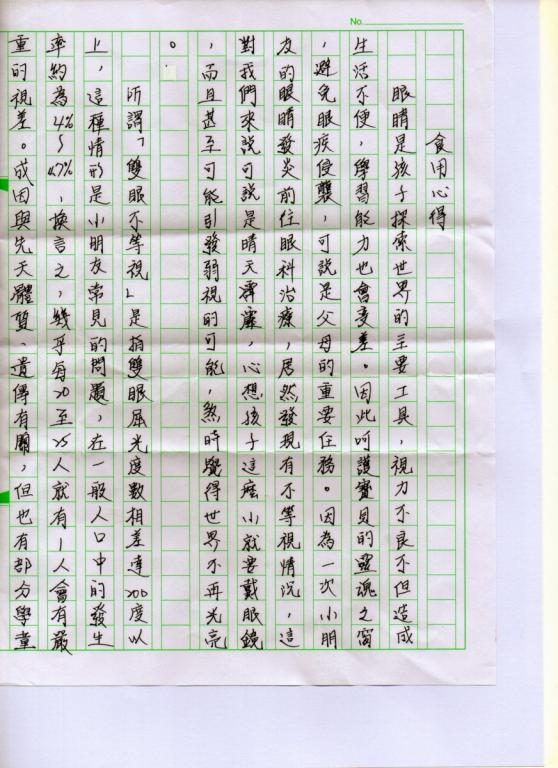 No.
食用心得
眼睛是孩子探索世界的主要工具，視力不良不但造成
生活不便，學習能力也會變差。因此呵護寶貝的靈魂之窗
，避免眼疾侵襲，可說是父母的重要任務。因為一次小朋
友的眼睛發炎前往眼科治療，居然發現有不等視情況，這
對我們來說可說是晴天霹靂，心想孩子這麼小就要戴眼鏡
，而且甚至可能引發弱視的可能，煞時覺得世界不再光亮
。
所謂「雙眼不等視」是指雙眼屈光度數相差達200度以
上，這種情形是小朋友常見的問題，在一般人口中的發生
率約為4%～4.7%，換言之，幾乎每20至25人就有1人會有嚴
重的視差。成因與先天體質、遺傳有關，但也有部分學童